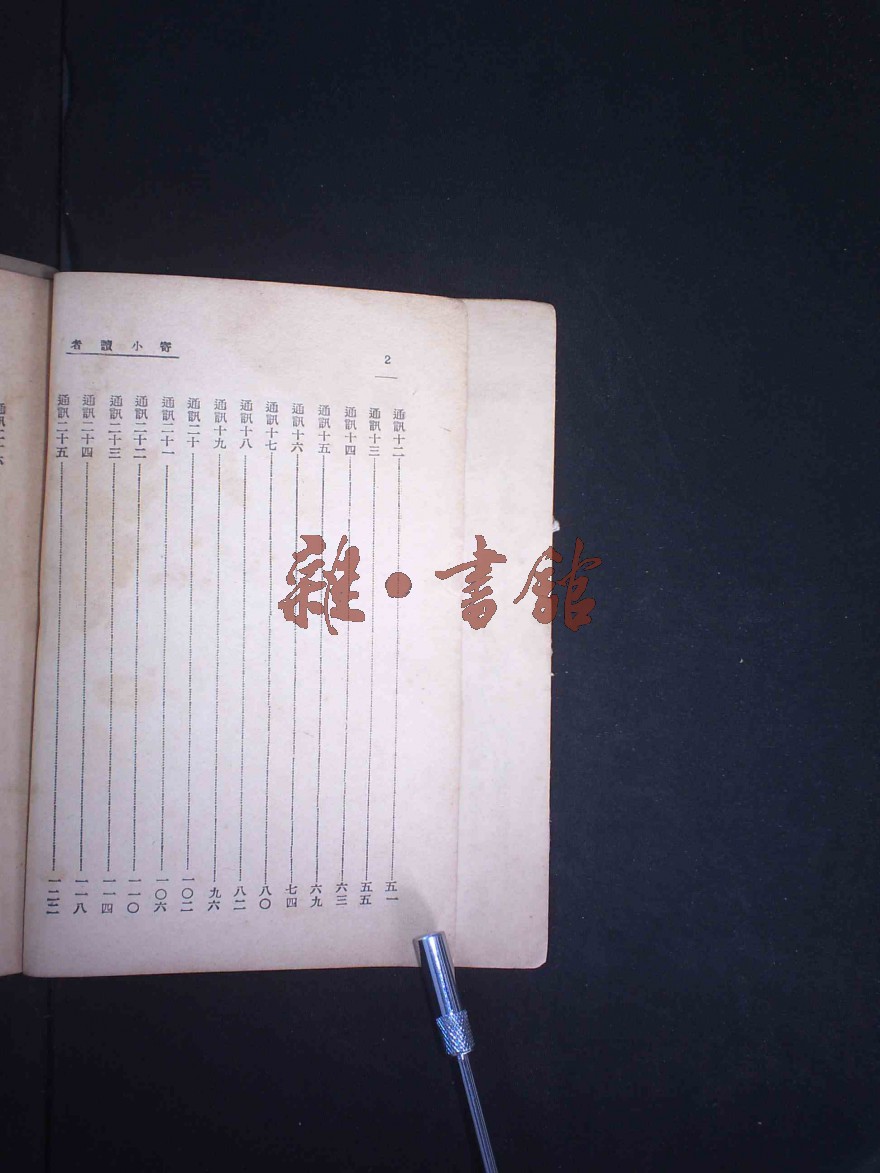 2
寄小讀者
通訊十二 五一
通訊十三 五五
通訊十四 六三
通訊十五 六九
通訊十六 七四
通訊十七 八〇
通訊十八 八二
通訊十九 九六
通訊二十 一〇二
通訊二十一 一〇六
通訊二十二 一一〇
通訊二十三 一一四
通訊二十四 一一八
通訊二十五
雜·書館